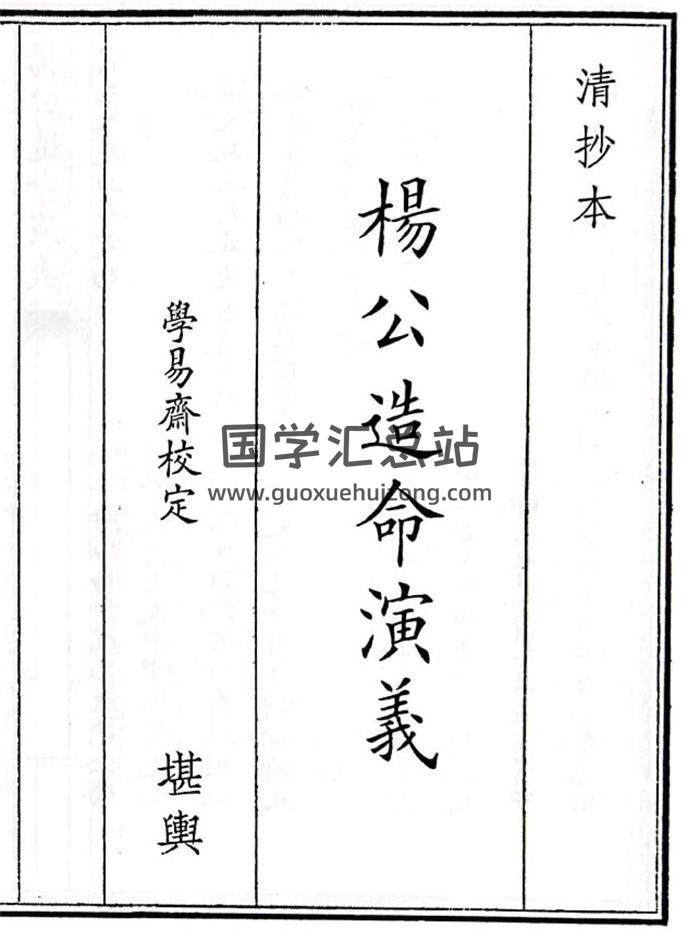 清抄本
楊公造命演義
學易齋校定
堪輿
国学汇总站
www.guoxuehuizong.com